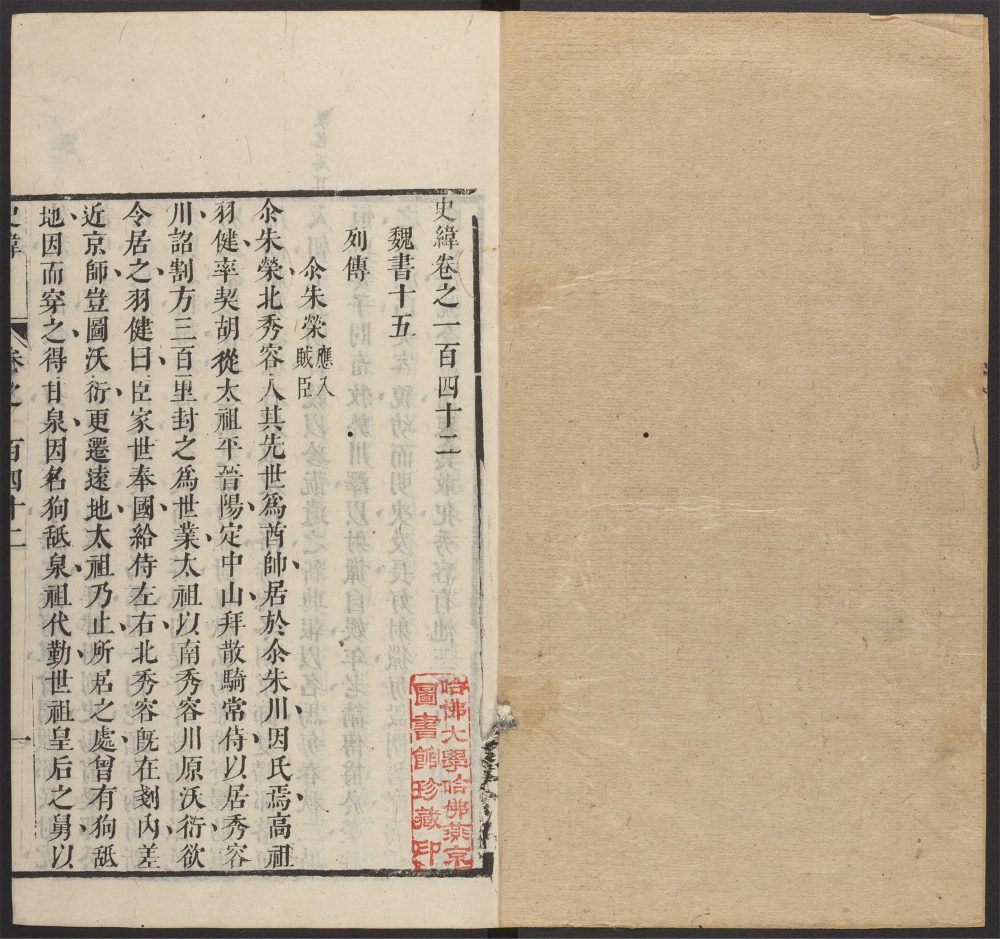 史緯卷之一百四十二
魏書十五
列傳
尒朱榮應入賊臣
尒朱榮北秀容人其先世爲酋帥居於尒朱川因氏焉高祖
羽健率契胡從太祖平晉陽定中山拜散騎常侍以居秀容
川詔割方三百里封之爲世業太祖以南秀容川原沃衍欲
令居之羽健曰臣家世奉國給侍左右北秀容旣在剗內差
近京師豈圖沃衍更遷遠地太祖乃止所居之處曾有狗舐
地因而穿之得甘泉因名狗舐泉祖代勤世祖皇后之舅以
史緯
卷之一百四十二
一
哈佛大學哈佛燕京
圖書館珍藏印